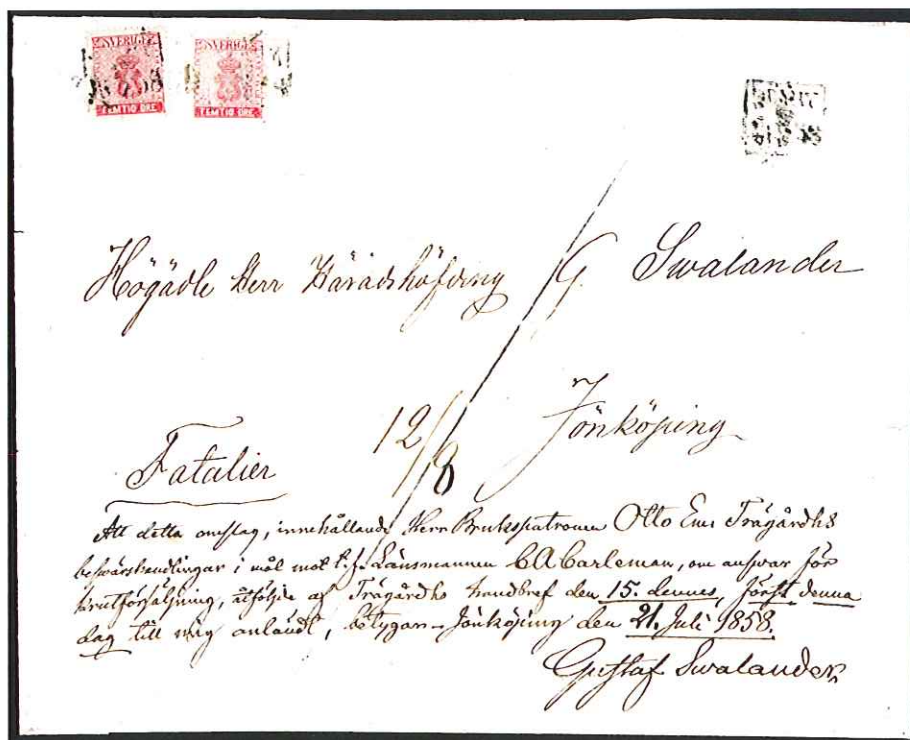 SVERIGE SVERIGE
FEMTIO ÖRE FEMTIO ÖRE
Högädle Herr Häradshöfding G. Swalander
Jönköping
12/8
Fatalier
Att detta omslag, innehållande Herr Bruksspatronen Otto Em: Trägårdhs
besvärshandlingar i mål mot t.f. Länsmannen C A Carleman, om answar för
krutförsäljning, åtföljde af Trägårdhs handbref den 15. dennes, först denna
dag till mig anländt, betygar – Jönköping den 21. Juli 1858.
Gustaf Swalander